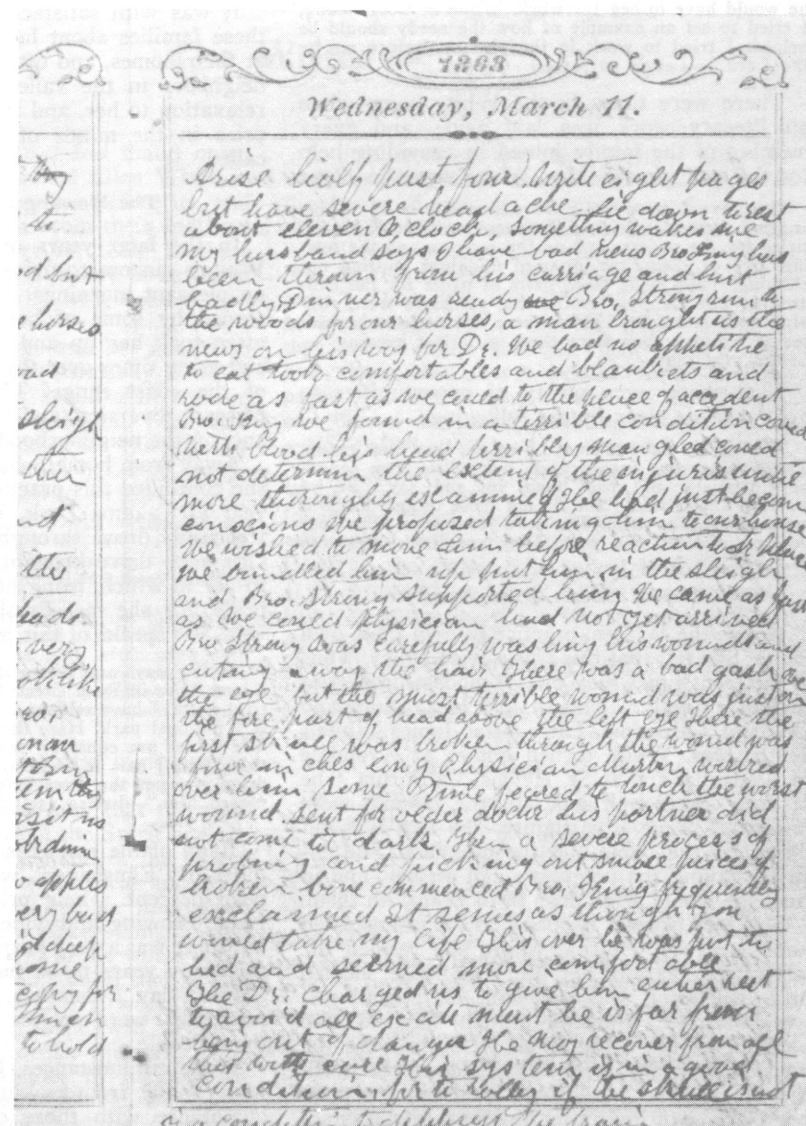 1868
Wednesday, March 11.
Arise half past four. Write eight pages
but have severe headache lie down to rest
about eleven Oclock, Something wakes me
my husband says I have bad news Bro King has
been thrown from his carriage and hurt
badly Dinner was ready Bro. Strong run to
the woods for our horses, a man brought us the
news on his way for Dr. We had no appetite
to eat took comfortables and blankets and
rode as fast as we could to the place of accident
Bro. King we found in a terrible condition coverd
with blood his head terribly mangled could
not determin the extent of the injuris until
more thoroughly examined He had just become
conscious we proposed taking him to our house
We wished to move him before reaction took place
we bundled him up put him in the sleigh
and Bro. Strong supported him We came as fast
as we could Physician had not yet arrived
Bro Strong was carefully washing his wounds and
cuting away the hair There was a bad gash over
the eye but the most terrible wound was just on
the fore part of head above the left eye There the
first skull was broken through the wound was
four inches long Physician Martin worked
over him some time feared to touch the worst
wound. sent for older doctor his partner did
not come til dark. Then a severe process of
probing and picking out small pieces of
broken bone commenced Bro. King frequently
exclaimed It semes as though you
would take my life This over he was put to
bed and seemed more comfortable
The Dr. charged us to give him entire rest
to avoid all excitement he is far from
being out of danger He may recover from all
this with care His system is in a good
condition for to rally if the skull is not
in a condition to depress the brain
but
horses
sleigh
the
heads
very
Bro.
visit us
apples
very bad
deep
home
copy for
to hold